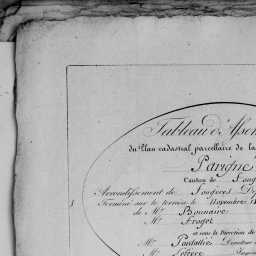 Tableau d'Assem
du Plan cadastral parcellaire de la
Parigné
Canton de Foug
Arrondissement de Fougères De
Terminé sur le terrain le Novembre
de Mr Bonnaire
Mr Fraget
et sous la Direction de
Mr Pantallier Directeur
Mr Lefèvre